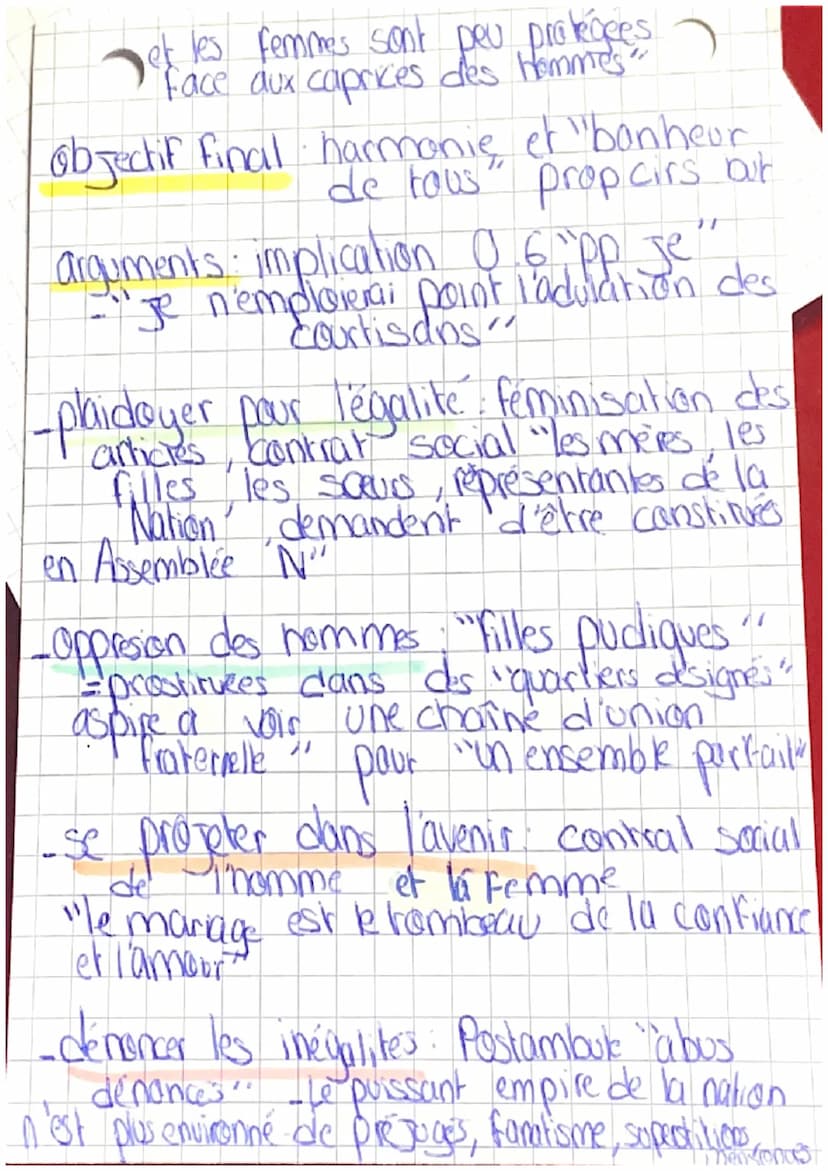 et les femmes sont peu protégées
face aux caprices des Hommes"
Objectif final : harmonie et "bonheur
de tous"
arguments : implication O. G "pp je"
- "je n'emploierai point l'adulation des
courtisans"
- plaidoyer pour l'égalité : féminisation des
articles, contrat social "les mères, les
filles, les sœurs, représentantes de la
Nation, demandent d'être constitués
en Assemblée N"
- oppresion des hommes : "filles pudiques"
= prostituées dans des "quartiers désignés"
aspire a voir une chaîne d'union
fraternelle" pour "un ensemble parfait"
- se projeter dans l'avenir : contrat social
de l'homme et la Femme
"le mariage est le tombeau de la confiance
et l'amour"
- dénoncer les inégalités : Postambule "abus
dénoncés" - Le puissant empire de la nation
n'est plus environné de préjugés, fanatisme, superstitions,
mensonges